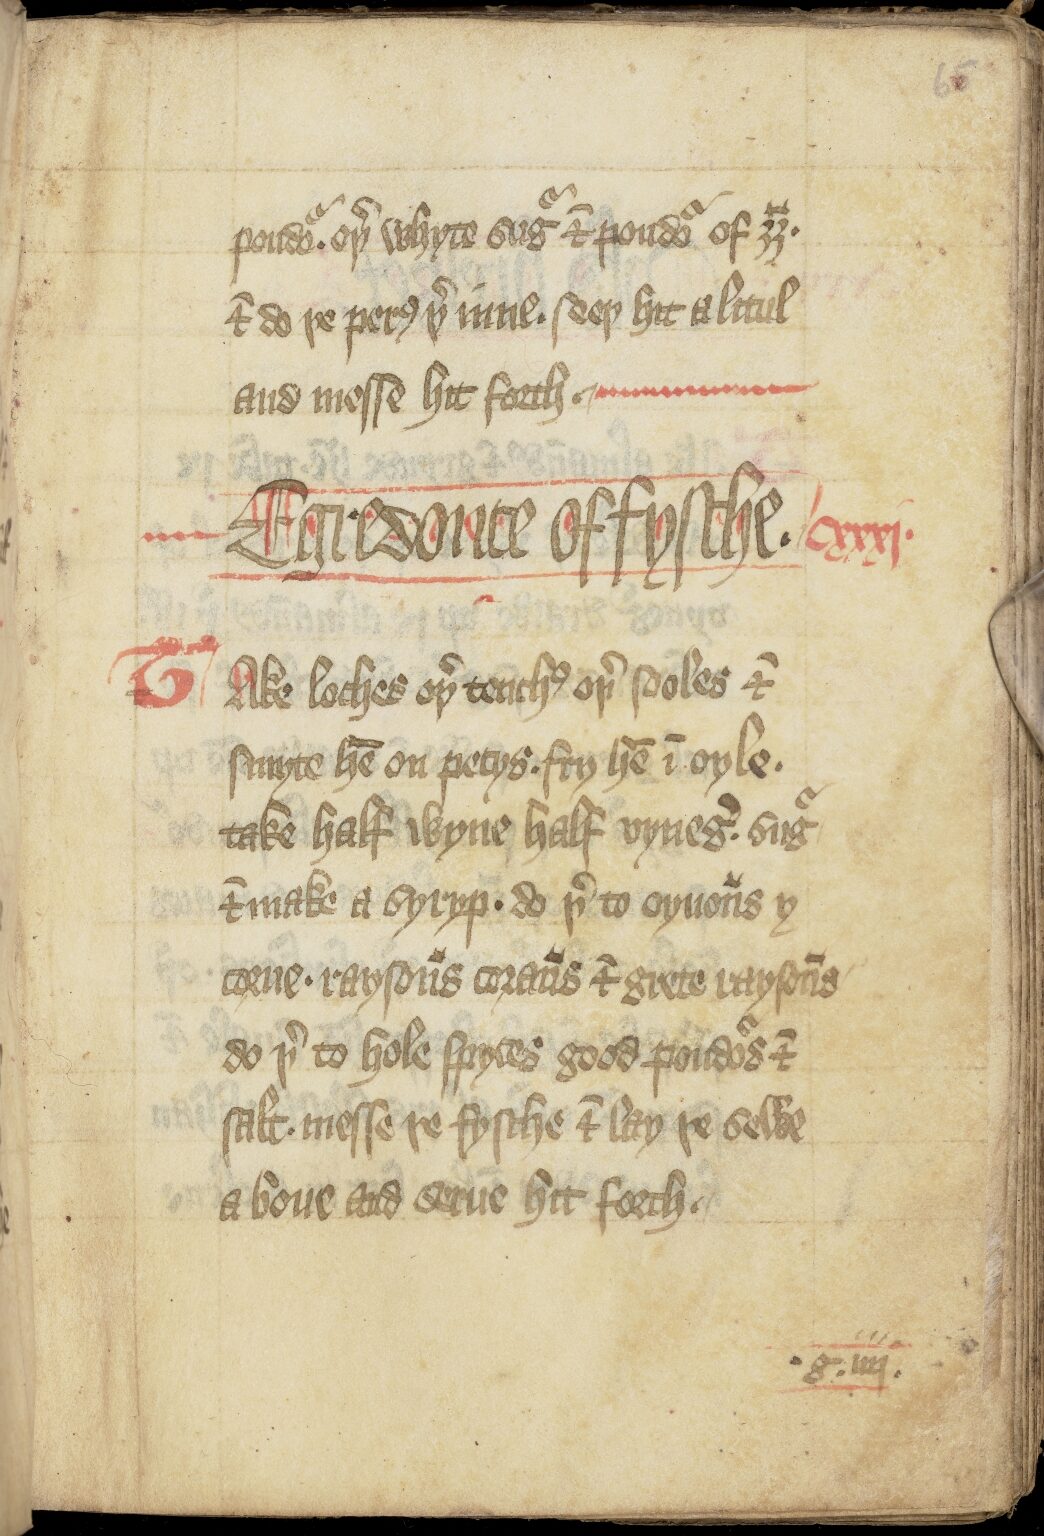 65
poudoͬ. oþͬ whyte sugᷓ ⁊ poudoͬ of gȳḡ.
⁊ do þe perꝰ þͬ inne. seeþ hit a litul
and messe hit forth.
Egredouce of fysche. cxxxj.
TAke loches oþͬ tenchꝰ oþͬ sooles ⁊
smyte hē on pecys. fry hē ī oyle.
take half wyne half vynegͬ. sugᷓ
⁊ make a syryp. do þͬ to oynoūs y
corue. raysoūs coraūs ⁊ grete raysoūs
do þͬ to hole spyces good poudoͬs ⁊
salt. messe þe fysche ⁊ lay þe sewe
a boue and serue hit forth.
.g. iiij.